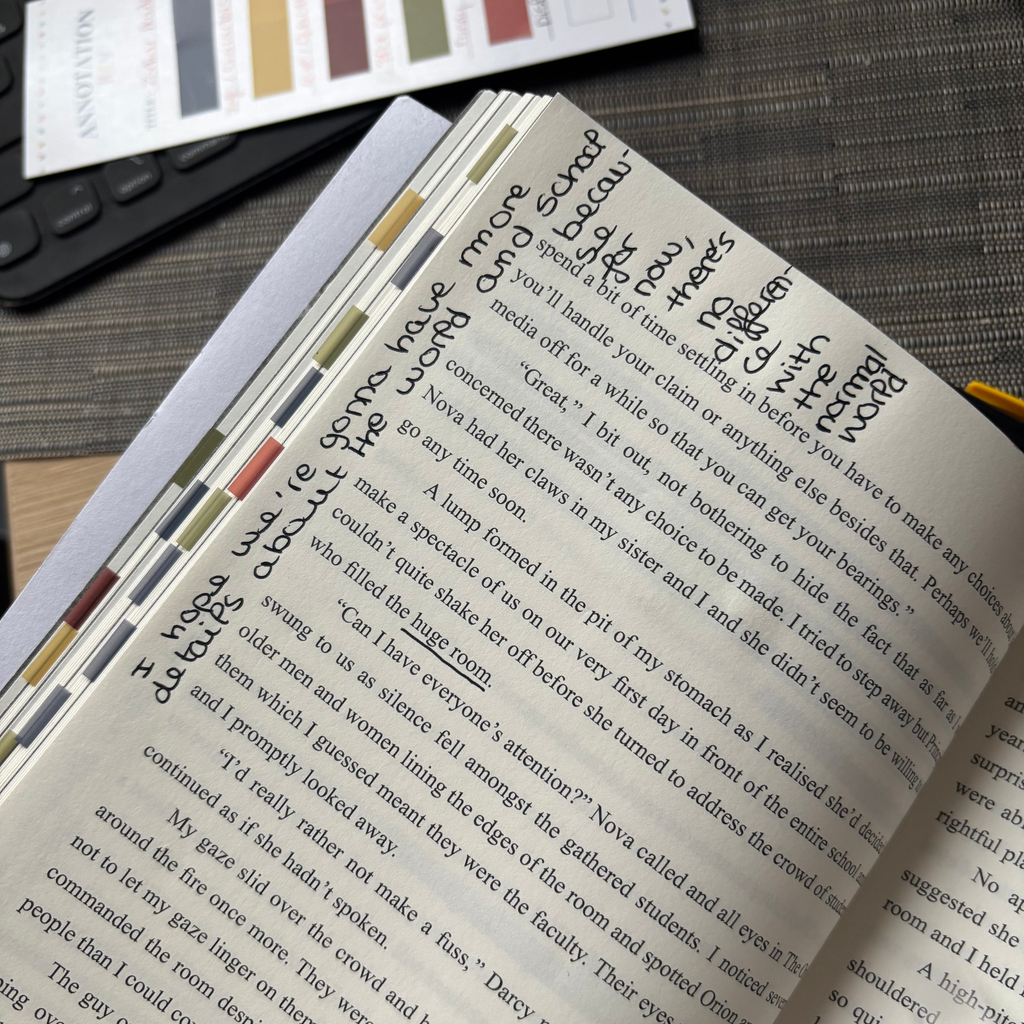 ANNOTATION
control
option
I hope we're gonna have more
details about the world and school
becau-
se
for
now,
there's
no
differen-
ce
with
the
normal
world
spend a bit of time settling in before you have to make any choices about
you'll handle your claim or anything else besides that. Perhaps we'll
media off for a while so that you can get your bearings."
"Great," I bit out, not bothering to hide the fact that as far as I
concerned there wasn't any choice to be made. I tried to step away but
Nova had her claws in my sister and I and she didn't seem to be willing
go any time soon.
A lump formed in the pit of my stomach as I realised she'd
make a spectacle of us on our very first day in front of the entire school
couldn't quite shake her off before she turned to address the crowd of
who filled the huge room.
"Can I have everyone's attention?" Nova called and all eyes in The
swung to us as silence fell amongst the gathered students. I noticed
older men and women lining the edges of the room and spotted Orion
them which I guessed meant they were the faculty. Their eyes
and I promptly looked away.
"I'd really rather not make a fuss," Darcy
continued as if she hadn't spoken.
My gaze slid over the crowd and
around the fire once more. They were
not to let my gaze linger on
commanded the room
people than I could
The guy
an
year
surpris
were ab
rightful pl
No ap
suggested she
room and I held
A high-pit
shouldered
so qui